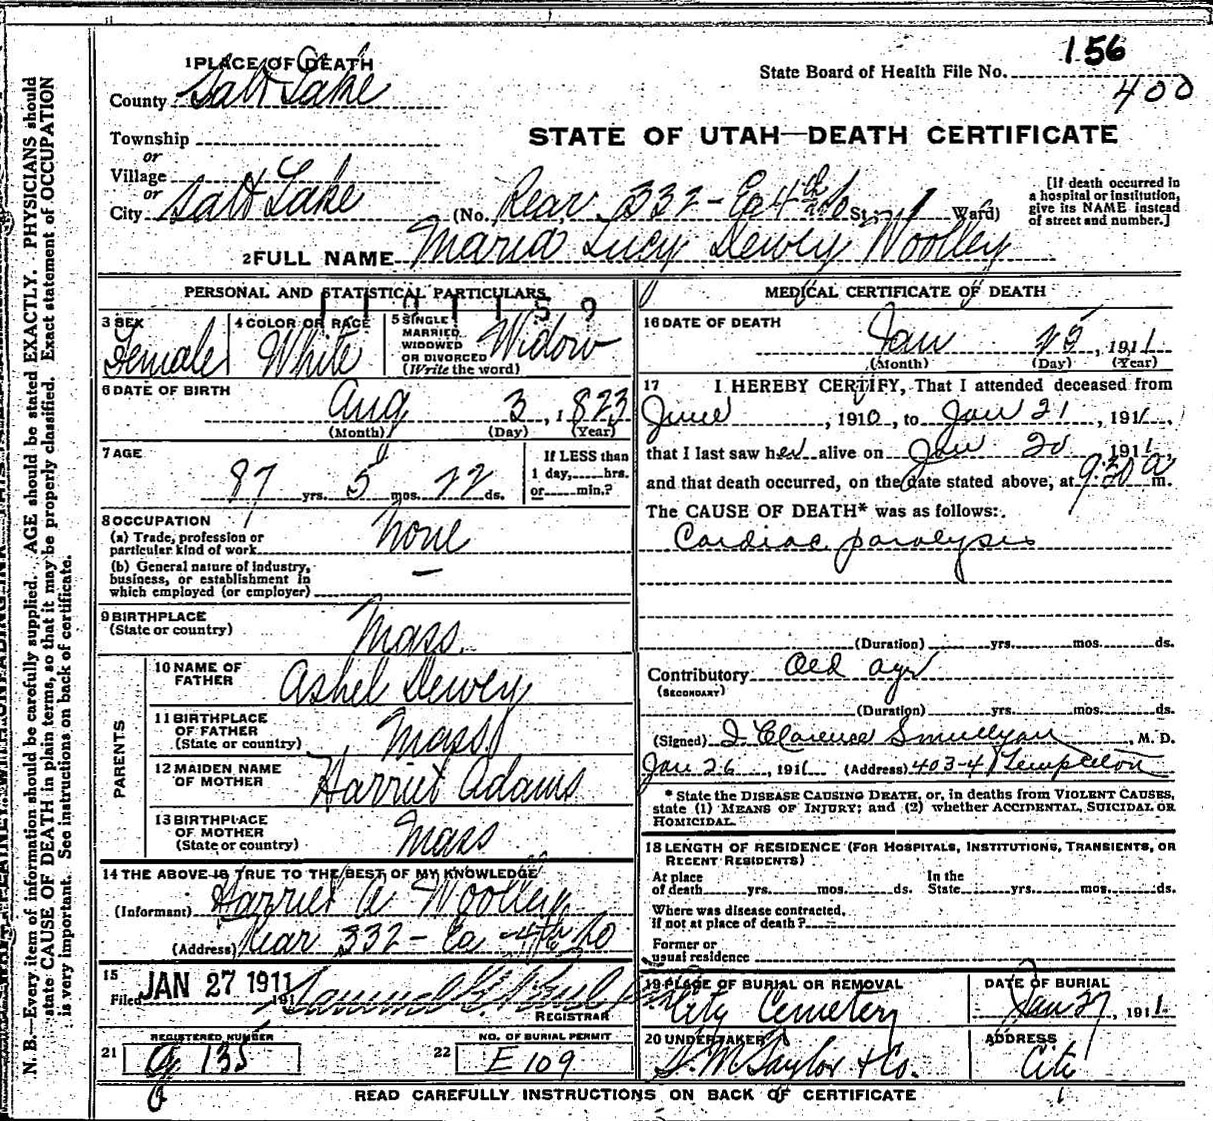 1 PLACE OF DEATH
County Salt Lake
State Board of Health File No. 156
400
Township
or
Village
or
City Salt Lake
STATE OF UTAH—DEATH CERTIFICATE
(No. Rear 332 - Ea 4th So St; 1 Ward)
[If death occurred in
a hospital or institution,
give its NAME instead
of street and number.]
2 FULL NAME Maria Lucy Dewey Woolley
PERSONAL AND STATISTICAL PARTICULARS
3 SEX
Female
4 COLOR OR RACE
White
5 SINGLE
MARRIED
WIDOWED
OR DIVORCED
(Write the word)
Widow
6 DATE OF BIRTH
Aug 3, 1823
(Month) (Day) (Year)
7 AGE
87 yrs. 5 mos. 22 ds.
If LESS than
1 day, hrs.
or min.?
8 OCCUPATION
(a) Trade, profession or
particular kind of work
None
(b) General nature of industry,
business, or establishment in
which employed (or employer)
—
9 BIRTHPLACE
(State or country)
Mass.
PARENTS
10 NAME OF
FATHER
Ashel Dewey
11 BIRTHPLACE
OF FATHER
(State or country)
Mass
12 MAIDEN NAME
OF MOTHER
Harriet Adams
13 BIRTHPLACE
OF MOTHER
(State or country)
Mass
14 THE ABOVE IS TRUE TO THE BEST OF MY KNOWLEDGE
(Informant) Harriet A Woolley
(Address) Rear 332 - Ea 4th So
15
Filed JAN 27 1911 191
REGISTRAR
REGISTERED NUMBER
21 135
NO. OF BURIAL PERMIT
22 E 109
MEDICAL CERTIFICATE OF DEATH
16 DATE OF DEATH
Jan 25, 1911
(Month) (Day) (Year)
17 I HEREBY CERTIFY, That I attended deceased from
June, 1910, to Jan 21, 1911,
that I last saw her alive on Jan 20 1911,
and that death occurred, on the date stated above, at 9:30 a m.
The CAUSE OF DEATH* was as follows:
Cardiac paralysis
(Duration) yrs. mos. ds.
Contributory Old age
(SECONDARY)
(Duration) yrs. mos. ds.
(Signed) J Clarence Smullyan, M. D.
Jan 26, 1911 (Address) 403-4 Templeton
* State the DISEASE CAUSING DEATH, or, in deaths from VIOLENT CAUSES,
state (1) MEANS OF INJURY; and (2) whether ACCIDENTAL, SUICIDAL OR
HOMICIDAL.
18 LENGTH OF RESIDENCE (FOR HOSPITALS, INSTITUTIONS, TRANSIENTS, OR
RECENT RESIDENTS)
At place
of death yrs. mos. ds.
In the
State yrs. mos. ds.
Where was disease contracted,
if not at place of death?
Former or
usual residence
19 PLACE OF BURIAL OR REMOVAL
City Cemetery
DATE OF BURIAL
Jan 27, 1911.
20 UNDERTAKER
S. M. Taylor & Co.
ADDRESS
City
READ CAREFULLY INSTRUCTIONS ON BACK OF CERTIFICATE
N. B.—Every item of information should be carefully supplied. AGE should be stated EXACTLY. PHYSICIANS should
state CAUSE OF DEATH in plain terms, so that it may be properly classified. Exact statement of OCCUPATION
is very important. See instructions on back of certificate.